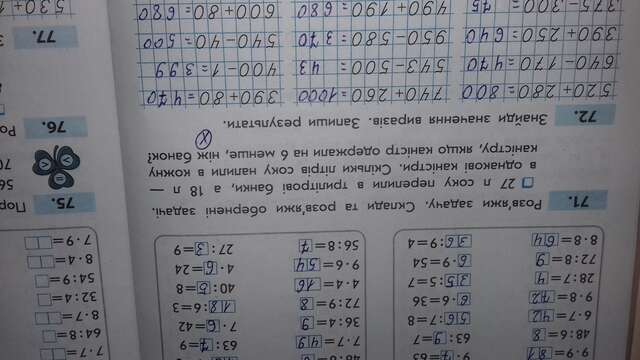 9·9=81 9·7=63
48:6=8 63:9=7 7·7=49 63:7=9 7·7=
6·7=42 56:7=8 36:4=9 7·6=42 64:8=
9·8=72 6·6=36 72:9=8 18:6=3 8·7=
28:7=4 35:5=7 4·4=16 40:5=8 32:4=
72:8=9 6·9=54 9·6=54 4·6=24 54:9=
8·8=64 36:9=4 56:8=7 27:3=9 8·4=
7·9=
71. Розв'яжи задачу. Склади та розв'яжи обернені задачі.
27 л соку перелили в трилітрові банки, а 18 л —
в однакові каністри. Скільки літрів соку налили в кожну
каністру, якщо каністр одержали на 6 менше, ніж банок?
72. Знайди значення виразів. Запиши результати.
520+280=800 740+260=1000 390+80=470
640-170=470 543-500=43 400-1=399
390+250=640 950-580=370 540-40=500
375-300=75 490+190=680 600+80=680
75. Пор
56
70
76. Ро
77.
530+1